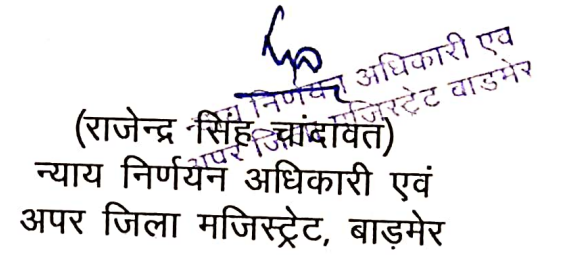 न्याय निर्णयन अधिकारी एव
अपर जिला मजिस्ट्रेट वाडमेर
(राजेन्द्र सिंह चांदावत)
न्याय निर्णयन अधिकारी एवं
अपर जिला मजिस्ट्रेट, बाड़मेर